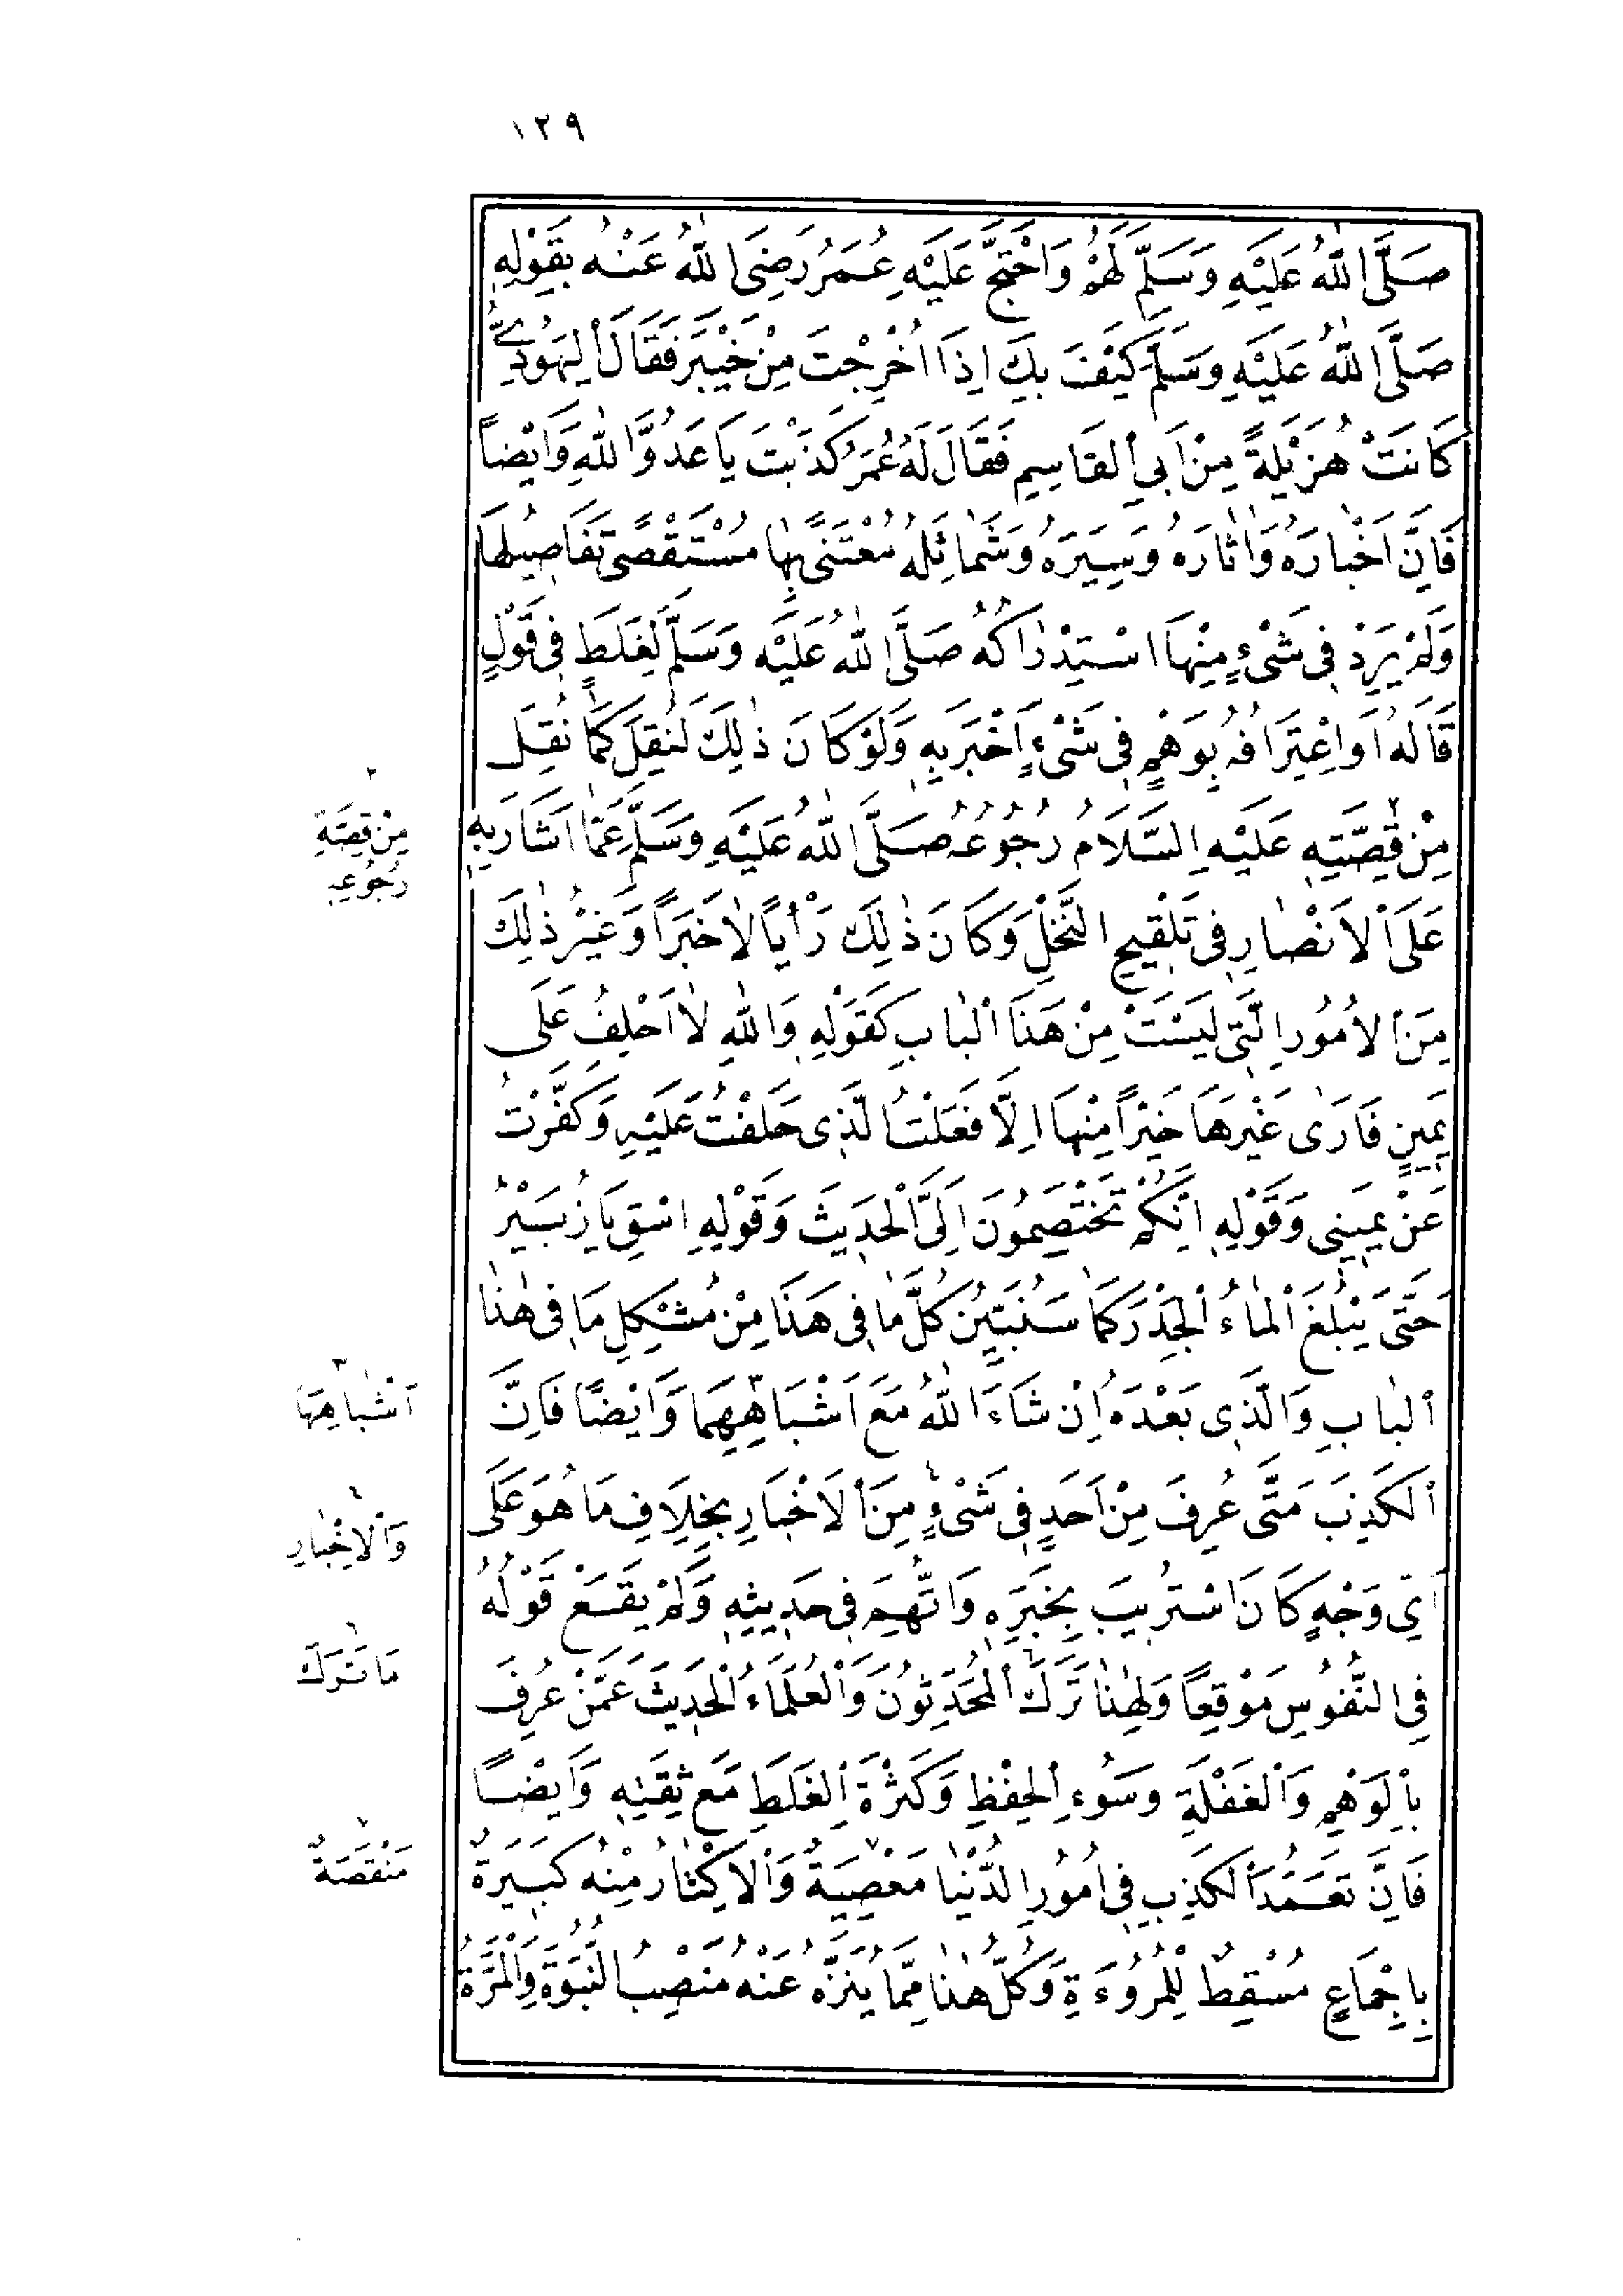 ١٢٩
صَلَّى اللّٰهُ عَلَيْهِ وَسَلَّمَ لَهُمْ وَاحْتَجَّ عَلَيْهِ عُمَرُ رَضِيَ اللّٰهُ عَنْهُ بِقَوْلِهِ
صَلَّى اللّٰهُ عَلَيْهِ وَسَلَّمَ كَيْفَ بِكَ اِذَا اُخْرِجْتَ مِنْ خَيْبَرَ فَقَالَ الْيَهُودِيُّ
كَانَتْ هُزَيْلَةً مِنْ اَبِي الْقَاسِمِ فَقَالَ لَهُ عُمَرُ كَذَبْتَ يَا عَدُوَّ اللّٰهِ وَاَيْضًا
فَاِنَّ اَخْبَارَهُ وَاٰثَارَهُ وَسِيَرَهُ وَشَمَائِلَهُ مُعْتَنًى بِهَا مُسْتَقْصًى تَفَاصِيلُهَا
وَلَمْ يَرِدْ فِي شَيْءٍ مِنْهَا اسْتِدْرَاكُهُ صَلَّى اللّٰهُ عَلَيْهِ وَسَلَّمَ لِغَلَطٍ فِي قَوْلٍ
قَالَهُ اَوِ اعْتِرَافُهُ بِوَهْمٍ فِي شَيْءٍ اَخْبَرَ بِهِ وَلَوْ كَانَ ذٰلِكَ لَنُقِلَ كَمَا نُقِلَ
مِنْ قِصَّتِهِ٢ عَلَيْهِ السَّلَامُ رُجُوعُهُ صَلَّى اللّٰهُ عَلَيْهِ وَسَلَّمَ عَمَّا اَشَارَ بِهِ
عَلَى الْاَنْصَارِ فِي تَلْقِيحِ النَّخْلِ وَكَانَ ذٰلِكَ رَأْيًا لَا خَبَرًا وَغَيْرُ ذٰلِكَ
مِنَ الْاُمُورِ الَّتِي لَيْسَتْ مِنْ هَذَا الْبَابِ كَقَوْلِهِ وَاللّٰهِ لَا اَحْلِفُ عَلَى
يَمِينٍ فَاَرَى غَيْرَهَا خَيْرًا مِنْهَا اِلَّا فَعَلْتُ الَّذِي حَلَفْتُ عَلَيْهِ وَكَفَّرْتُ
عَنْ يَمِينِي وَقَوْلِهِ اِنَّكُمْ تَخْتَصِمُونَ اِلَيَّ الْحَدِيثَ وَقَوْلِهِ اِسْقِ يَا زُبَيْرُ
حَتَّى يَبْلُغَ الْمَاءُ الْجَدْرَ كَمَا سَنُبَيِّنُ كُلَّ مَا فِي هَذَا مِنْ مُشْكِلِ مَا فِي هٰذَا
الْبَابِ وَالَّذِي بَعْدَهُ اِنْ شَاءَ اللّٰهُ مَعَ اَشْبَاهِهِمَا٣ وَاَيْضًا فَاِنَّ
الْكَذِبَ مَتَى عُرِفَ مِنْ اَحَدٍ فِي شَيْءٍ٤ مِنَ الْاَخْبَارِ بِخِلَافِ مَا هُوَ عَلَى
اَيِّ وَجْهٍ كَانَ اسْتُرِيبَ بِخَبَرِهِ وَاتُّهِمَ فِي حَدِيثِهِ وَلَمْ يَقَعْ قَوْلُهُ
فِي النُّفُوسِ مَوْقِعًا وَلِهٰذَا تَرَكَ٦ الْمُحَدِّثُونَ وَالْعُلَمَاءُ الْحَدِيثَ عَمَّنْ عُرِفَ
بِالْوَهْمِ وَالْغَفْلَةِ وَسُوءِ الْحِفْظِ وَكَثْرَةِ الْغَلَطِ مَعَ ثِقَتِهِ وَاَيْضًا
فَاِنَّ تَعَمُّدَ الْكَذِبِ فِي اُمُورِ الدُّنْيَا مَعْصِيَةٌ٧ وَالْاِكْثَارُ مِنْهُ كَبِيرَةٌ
بِاِجْمَاعٍ مُسْقِطٌ لِلْمُرُوءَةِ وَكُلُّ هٰذَا مِمَّا يُنَزَّهُ عَنْهُ مَنْصِبُ النُّبُوَّةِ وَالْمَرَّةُ
٢
مِنْ قِصَّةِ
رُجُوعِهِ
٣
اَشْبَاهِهَا
٤
وَالْاِخْبَارِ
٦
مَا تَرَكَ
٧
مَنْقَصَةٌ